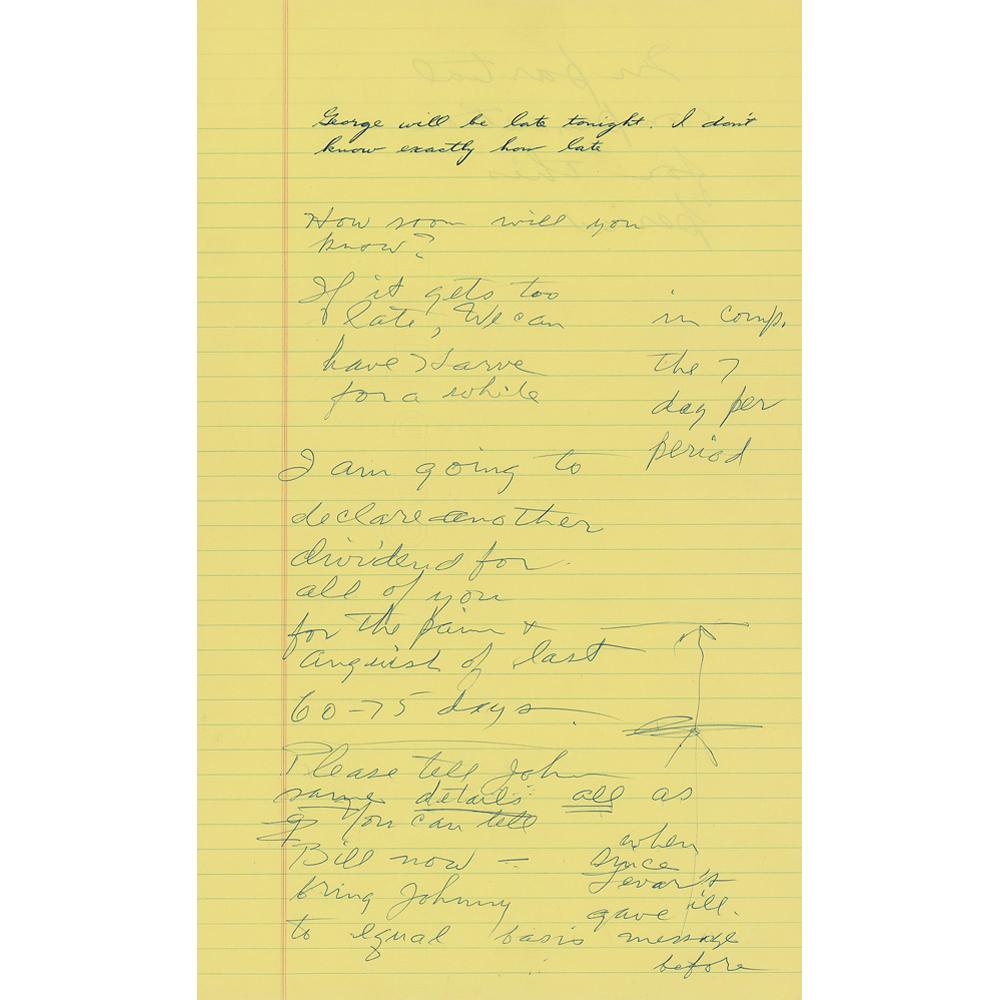 George will be late tonight. I don't
know exactly how late
How soon will you
know?
If it gets too
late, We can
have Harve
for a while
in comp.
the 7
day per
period
I am going to
declare another
dividend for
all of you
for the pain +
anguish of last
60-75 days.
Please tell John
same details all as
You can tell
Bill now —
bring Johnny
to equal basis
when
since
Levar's
gave ill.
message
before